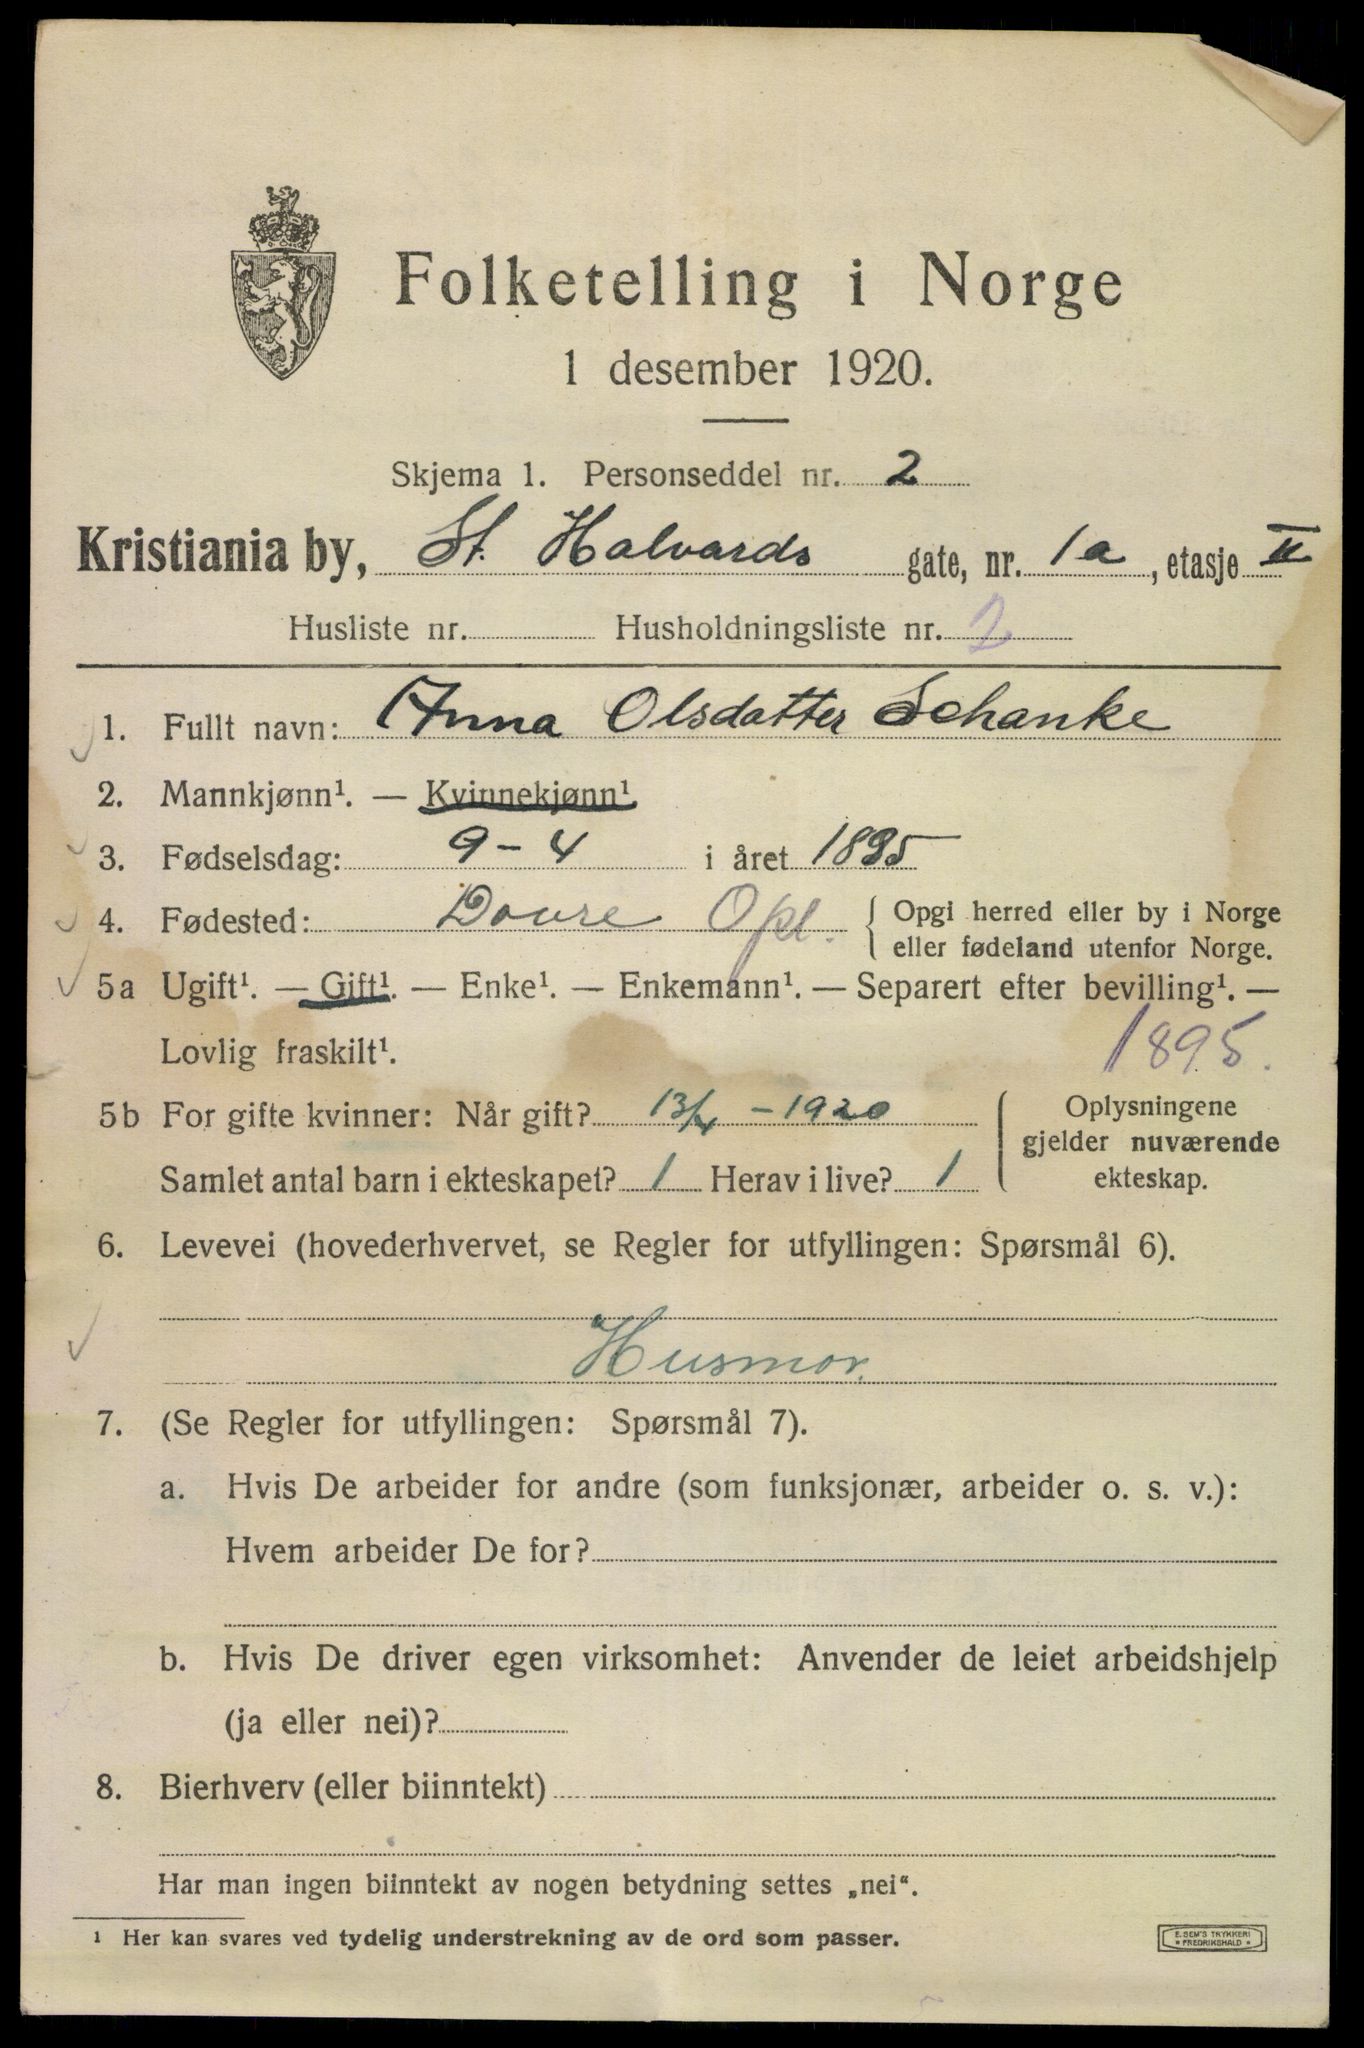 Folketelling i Norge
1 desember 1920.
Skjema 1. Personseddel nr. 2
Kristiania by, St. Halvards gate, nr. 1a, etasje II
Husliste nr. Husholdningsliste nr. 2
1. Fullt navn: Anna Olsdatter Schanke
2. Mannkjønn¹. — Kvinnekjønn¹
3. Fødselsdag: 9-4 i året 1895
4. Fødested: Dovre Opl. { Opgi herred eller by i Norge
eller fødeland utenfor Norge.
5a Ugift¹. — Gift¹. — Enke¹. — Enkemann¹. — Separert efter bevilling¹. —
Lovlig fraskilt¹. 1895.
5b For gifte kvinner: Når gift? 13/4 - 1920 { Oplysningene
gjelder nuværende
Samlet antal barn i ekteskapet? 1 Herav i live? 1 ekteskap.
6. Levevei (hovederhvervet, se Regler for utfyllingen: Spørsmål 6).
Husmor.
7. (Se Regler for utfyllingen: Spørsmål 7).
a. Hvis De arbeider for andre (som funksjonær, arbeider o. s. v.):
Hvem arbeider De for?
b. Hvis De driver egen virksomhet: Anvender de leiet arbeidshjelp
(ja eller nei)?
8. Bierhverv (eller biinntekt)
Har man ingen biinntekt av nogen betydning settes „nei".
¹ Her kan svares ved tydelig understrekning av de ord som passer.
E. SEM'S TRYKKERI
* FREDRIKSHALD *